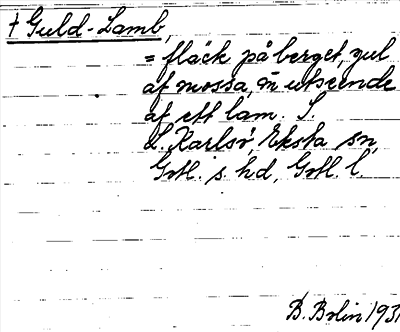 † Guld-Lamb,
= fläck på berget, gul
af mossa, m utseende
af ett lam. S.
L. Karlsö, Eksta sn,
Gotl. s. hd, Gotl. l.
B. Bolin 1931